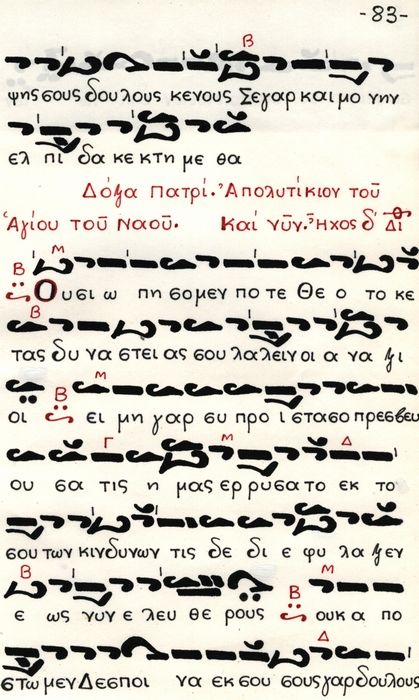 -83-
Β
ψης σους δουλους κενους Σε γαρ και μο νην
ελ πι δα κε κτη με θα
Δόξα Πατρί. Ἀπολυτίκιον τοῦ
Ἁγίου τοῦ Ναοῦ. Καί νῦν. Ἦχος δ΄ Δι
Β Μ Β
Ου σι ω πη σο μεν πο τε Θε ο το κε
Β
τας δυ να στει ας σου λα λειν οι α να ξι
Μ
οι Β ει μη γαρ συ προ ι στασο πρεσβευ
Γ Μ Δ
ου σα τις η μας ερ ρυσα το εκ το
σου των κιν δυνων τις δε δι ε φυ λα ξεν
Β Μ
ε ως νυν ε λευ θε ρους Β ουκ α πο
Δ
στω μεν Δεσποι να εκ σου σους γαρ δουλους